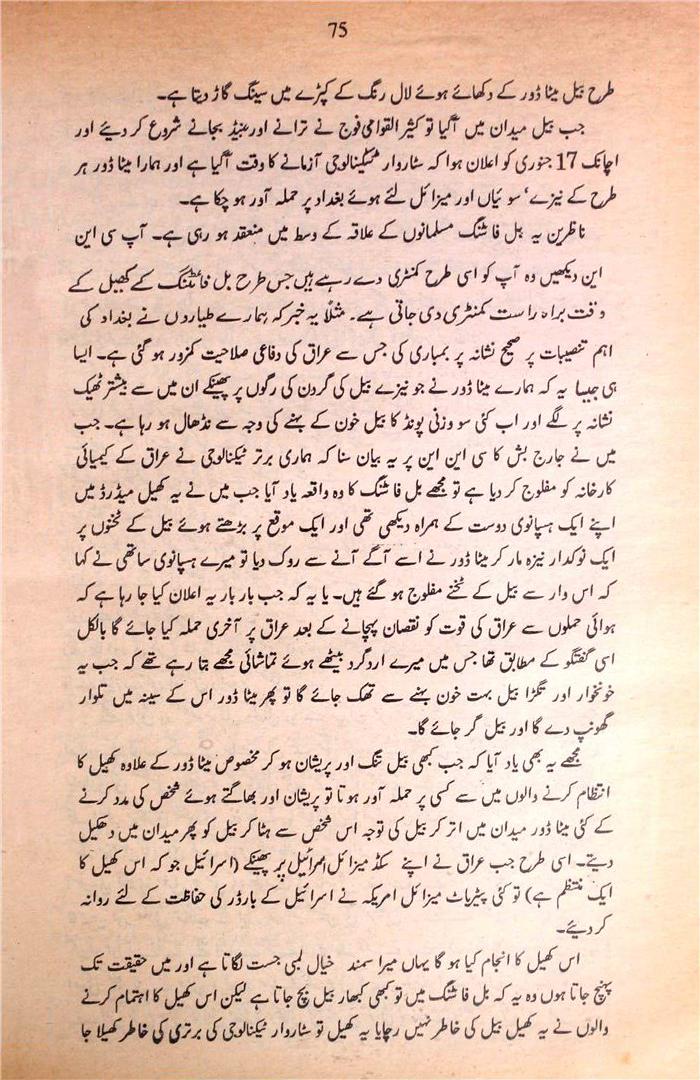 75
طرح بیل میٹا ڈور کے دکھائے ہوئے لال رنگ کے کپڑے میں سینگ گاڑ دیتا ہے۔
جب بیل میدان میں آگیا تو کثیر القوامی فوج نے ترانے اور بینڈ بجانے شروع کر دیئے اور
اچانک 17 جنوری کو اعلان ہوا کہ سٹاروار ٹیکنالوجی آزمانے کا وقت آگیا ہے اور ہمارا میٹا ڈور ہر
طرح کے نیزے، سوئیاں اور میزائل لئے ہوئے بغداد پر حملہ آور ہو چکا ہے۔
ناظرین یہ بل فائنگ مسلمانوں کے علاقہ کے وسط میں منعقد ہو رہی ہے۔ آپ سی این
این دیکھیں وہ آپ کو اسی طرح کمنٹری دے رہے ہیں جس طرح بل فائٹنگ کے کھیل کے
وقت براہ راست کمنٹری دی جاتی ہے۔ مثلاً یہ خبر کہ ہمارے طیاروں نے بغداد کی
اہم تنصیبات پر صحیح نشانہ پر بمباری کی جس سے عراق کی دفاعی صلاحیت کمزور ہو گئی ہے۔ ایسا
ہی جیسا یہ کہ ہمارے میٹا ڈور نے جو نیزے بیل کی گردن کی رگوں پر پھینکے ان میں سے بیشتر ٹھیک
نشانہ پر لگے اور اب کئی سو وزنی پونڈ کا بیل خون کے بہنے کی وجہ سے نڈھال ہو رہا ہے۔ جب
میں نے جارج بش کا سی این این پر یہ بیان سنا کہ ہماری برتر ٹیکنالوجی نے عراق کے کیمیائی
کارخانہ کو مفلوج کر دیا ہے تو مجھے بل فائنگ کا وہ واقعہ یاد آیا جب میں نے یہ کھیل میڈرڈ میں
اپنے ایک ہسپانوی دوست کے ہمراہ دیکھی تھی اور ایک موقع پر بڑھتے ہوئے بیل کے ٹخنوں پر
ایک نوکدار نیزہ مار کر میٹا ڈور نے اسے آگے آنے سے روک دیا تو میرے ہسپانوی ساتھی نے کہا
کہ اس وار سے بیل کے ٹخنے مفلوج ہو گئے ہیں۔ یا یہ کہ جب بار بار یہ اعلان کیا جا رہا ہے کہ
ہوائی حملوں سے عراق کی قوت کو نقصان پہچانے کے بعد عراق پر آخری حملہ کیا جائے گا بالکل
اسی گفتگو کے مطابق تھا جس میں میرے اردگرد بیٹھے ہوئے تماشائی مجھے بتا رہے تھے کہ جب یہ
خونخوار اور تگڑا بیل بہت خون بہنے سے تھک جائے گا تو پھر میٹا ڈور اس کے سینہ میں تلوار
گھونپ دے گا اور بیل گر جائے گا۔
مجھے یہ بھی یاد آیا کہ جب کبھی بیل تنگ اور پریشان ہو کر مخصوص میٹا ڈور کے علاوہ کھیل کا
انتظام کرنے والوں میں سے کسی پر حملہ آور ہوتا تو پریشان اور بھاگتے ہوئے شخص کی مدد کرنے
کے کئی میٹا ڈور میدان میں اتر کر بیل کی توجہ اس شخص سے ہٹا کر بیل کو پھر میدان میں دھکیل
دیتے۔ اسی طرح جب عراق نے اپنے سکڈ میزائل اسرائیل پر پھینکے (اسرائیل جو کہ اس کھیل کا
ایک منتظم ہے) تو کئی پیٹریاٹ میزائل امریکہ نے اسرائیل کے بارڈر کی حفاظت کے لئے روانہ
کر دیئے۔
اس کھیل کا انجام کیا ہو گا یہاں میرا سمند خیال لمبی جست لگاتا ہے اور میں حقیقت تک
پہنچ جاتا ہوں وہ یہ کہ بل فائنگ میں تو کبھی کبھار بیل بچ جاتا ہے لیکن اس کھیل کا اہتمام کرنے
والوں نے یہ کھیل بیل کی خاطر نہیں رچایا یہ کھیل تو سٹاروار ٹیکنالوجی کی برتری کی خاطر کھیلا جا